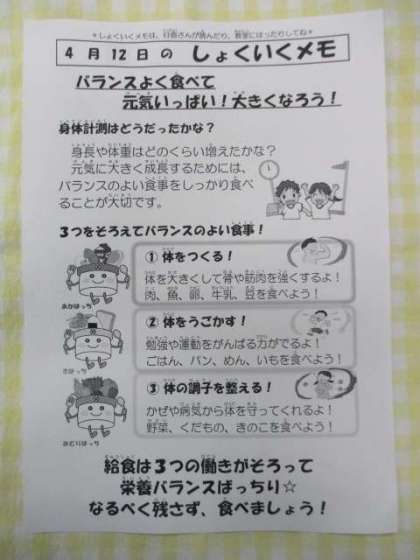 ＊しょくいくメモは、日直さんが読んだり、教室にはったりしてね＊
4月12日の しょくいくメモ
バランスよく食べて
元気いっぱい！大きくなろう！
身体計測はどうだったかな？
身長や体重はどのくらい増えたかな？
元気に大きく成長するためには、
バランスのよい食事をしっかり食べ
ることが大切です。
３つをそろえてバランスのよい食事！
① 体をつくる！
体を大きくして骨や筋肉を強くするよ！
肉、魚、卵、牛乳、豆を食べよう！
あかばっち
② 体をうごかす！
勉強や運動をがんばる力がでるよ！
ごはん、パン、めん、いもを食べよう！
きばっち
③ 体の調子を整える！
かぜや病気から体を守ってくれるよ！
野菜、くだもの、きのこを食べよう！
みどりばっち
給食は３つの働きがそろって
栄養バランスばっちり☆
なるべく残さず、食べましょう！